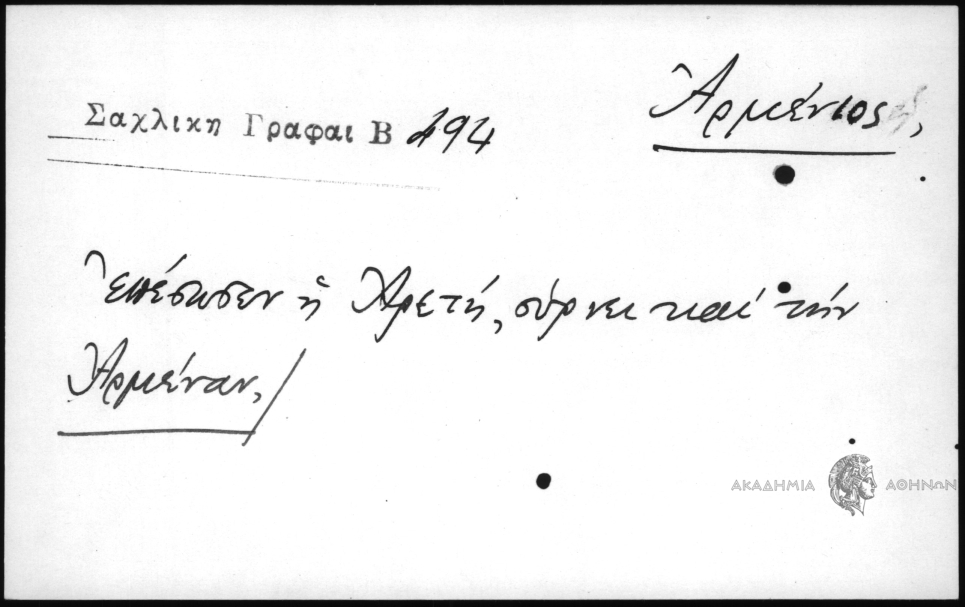 Ἀρμένιος,
Σαχλικη Γραφαι Β 494
ἐπέσωσεν ἡ Ἀρετή, σύρνει καί τήν
Ἀρμέναν,/
ΑΚΑΔΗΜΙΑ ΑΘΗΝΩΝ